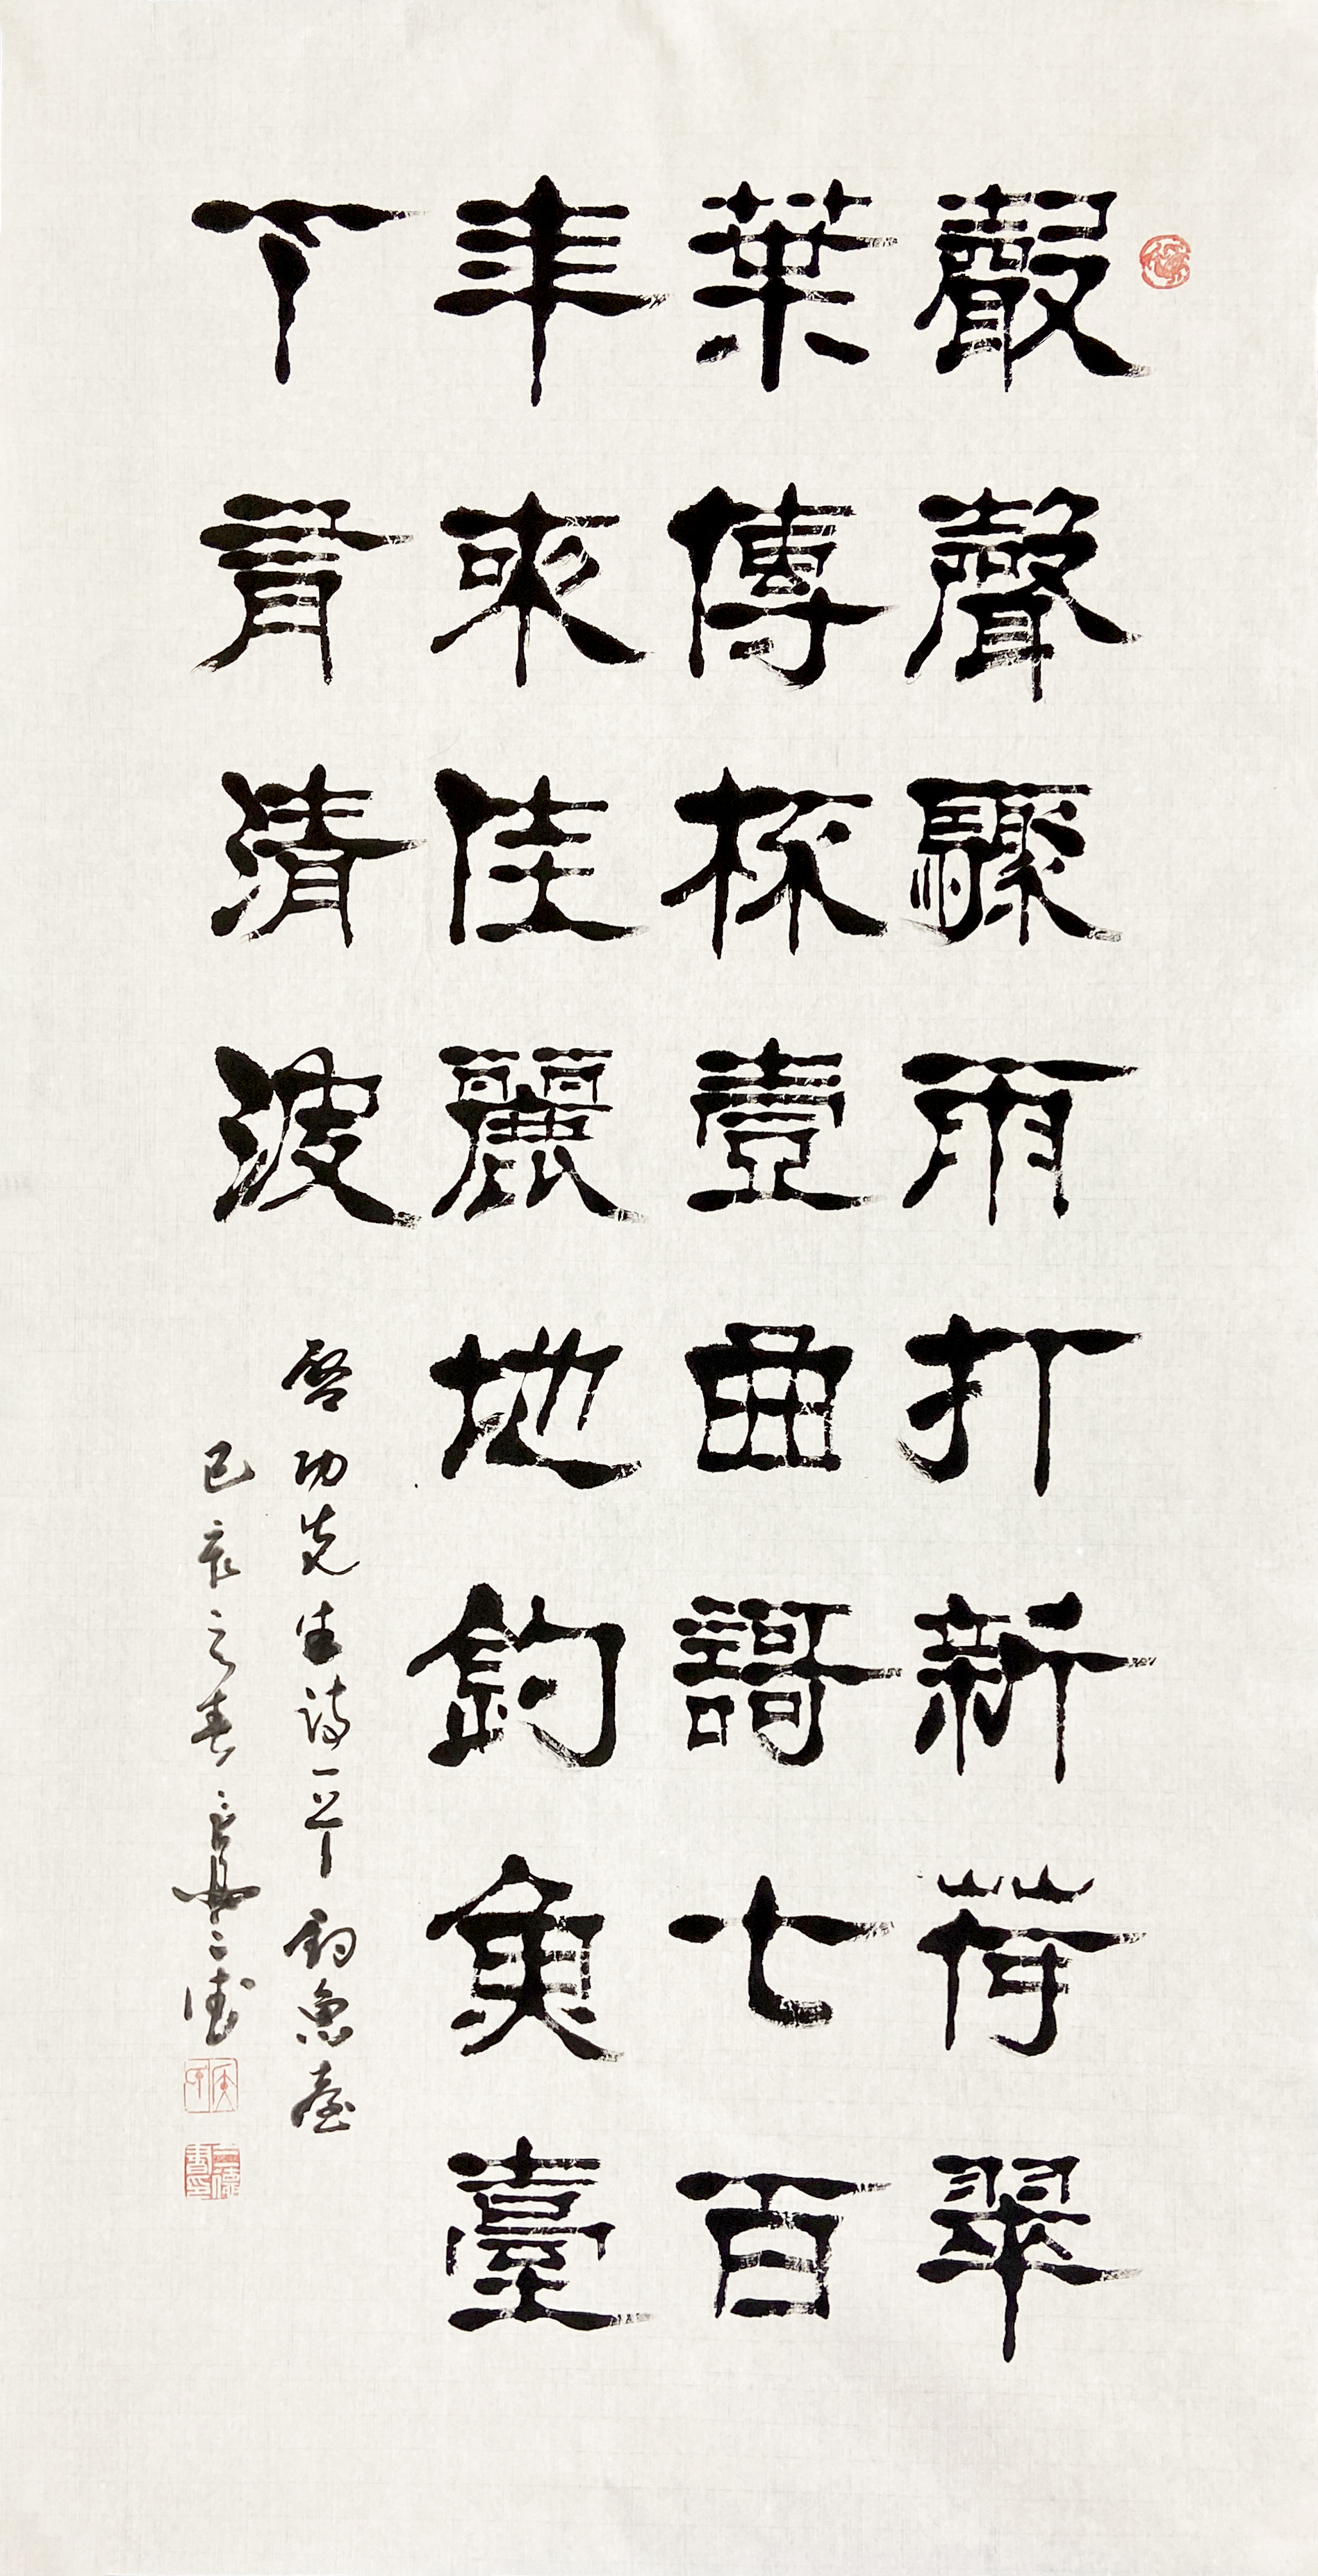 數聲驟雨打新荷翠
葉傳杯壹曲謌七百
年來佳麗地釣魚臺
下有清波
啓功先生詩一首 釣魚臺
己亥之春